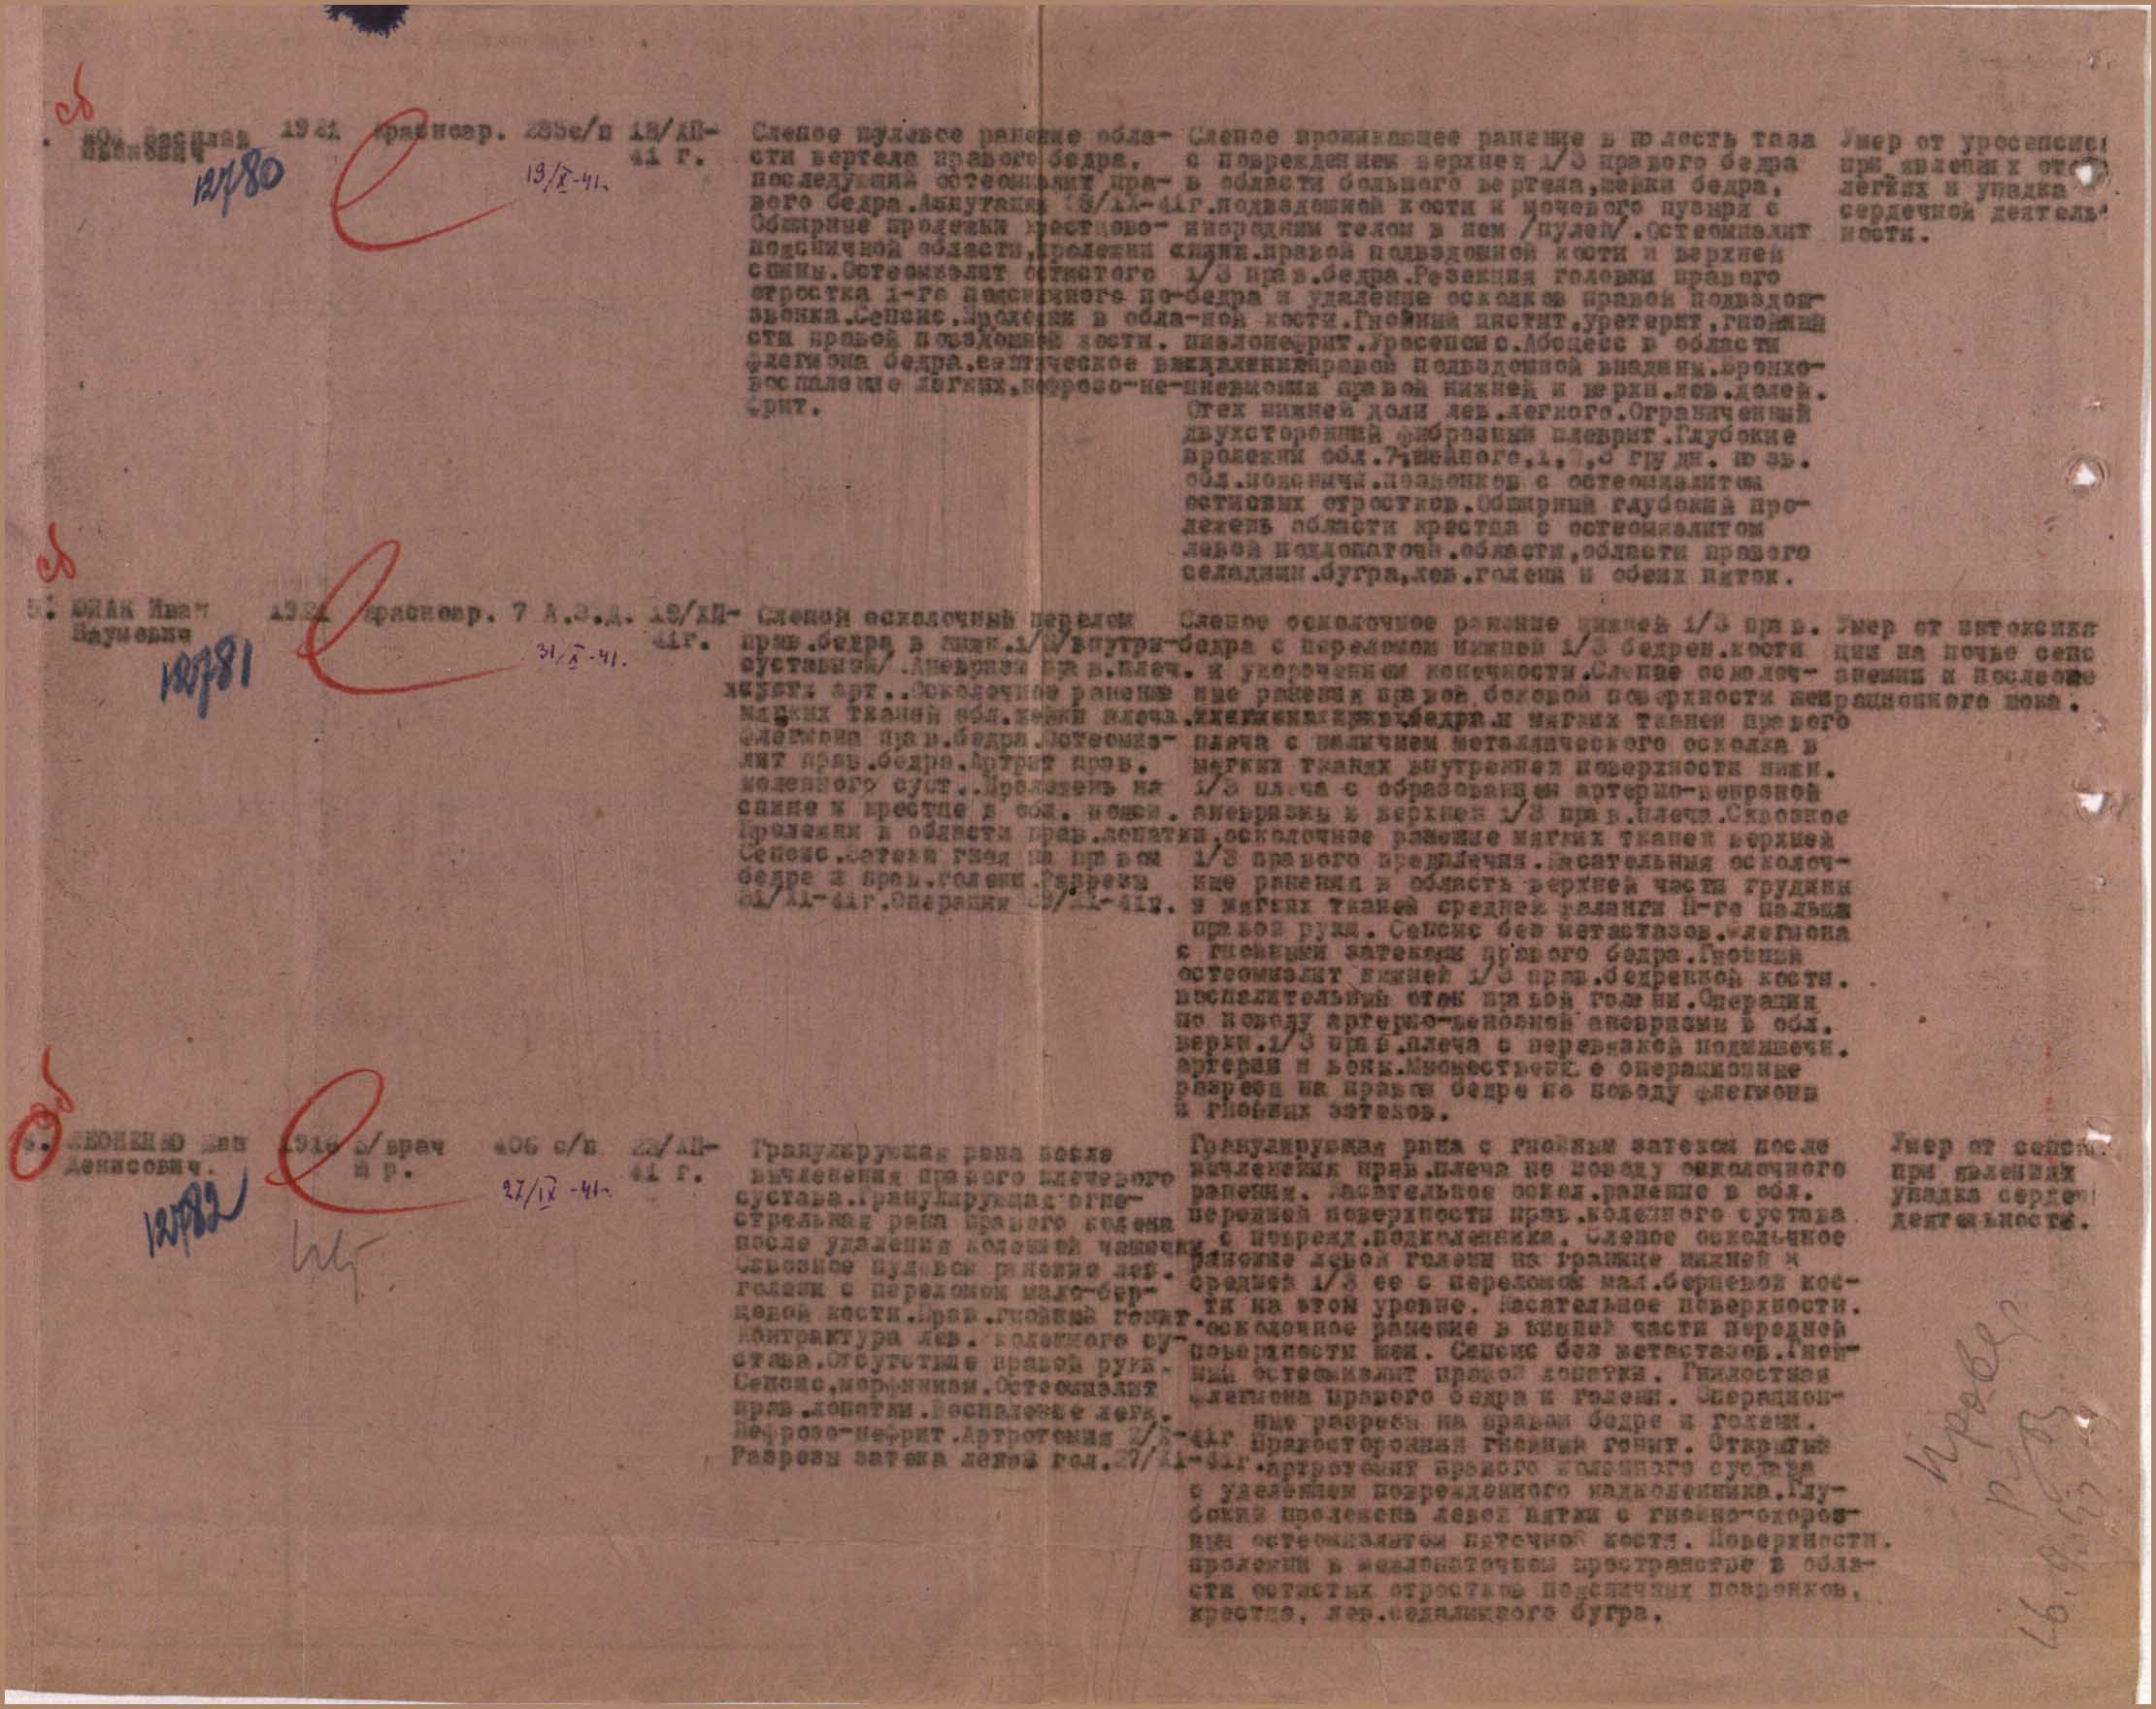 сб
Иванович
1921
Красноар.
с/п
12/XII-
41 г.
12780
19/X-41.
Слепое пулевое ранение обла-
сти вертела правого бедра,
последующий остеомиэлит пра-
вого бедра. Ампутация
Обширные пролежни крестцово-
поясничной области, пролежни
спины. Остеомиэлит остистого
отростка 1-го поясничного по-
звонка. Сепсис. Пролежни в обла-
сти правой повздошной кости.
Флегмона бедра, септическое
воспаление легких, нефрозо-не-
фрит.
Слепое проникающее ранение в полость таза
с повреждением верхней 1/3 правого бедра
в области большого вертела, шейки бедра,
подвздошной кости и мочевого пузыря с
инородным телом в нем /пулей/. Остеомиэлит
правой подвздошной кости и верхней
1/3 прав. бедра. Резекция головки правого
бедра и удаление осколков правой подвздош-
ной кости. Гнойный цистит, уретерит, гнойный
пиэлонефрит. Уросепсис. Абсцесс в области
правой подвздошной впадины. Бронхо-
пневмония правой нижней и верхн. лев. долей.
Отек нижней доли лев. легкого. Ограниченный
двухсторонний фиброзный плеврит. Глубокие
пролежни обл. 7 шейного, грудн. позв.
обл. пояснич. позвонков с остеомиэлитом
остистых отростков. Обширный глубокий про-
лежень области крестца с остеомиэлитом
левой подлопаточн. области, области правого
седалищн. бугра, лев. голени и обеих пяток.
Умер от уросепсиса
при явлениях
легких и упадка
сердечной деятель-
ности.
сб
5. ЮДАК Иван
Наумович
1921
Красноар. 7 А.З.Д.
12/XII-
41г.
12781
31/X-41.
Слепой осколочный перелом
прав. бедра в нижн. 1/3 /внутри-
суставной/. Аневризм прав. плеч.
арт.. Осколочное ранение
мягких тканей обл. шейки плеча.
Флегмона прав. бедра. Остеомиэ-
лит прав. бедра. Артрит прав.
коленного суст.. Пролежень на
спине и крестце в обл. поясн.
Пролежни в области прав. лопатки,
Сепсис. Затеки гноя на правом
бедре и прав. голени. Разрезы
Операция
Слепое осколочное ранение нижней 1/3 прав.
бедра с переломом нижней 1/3 бедрен. кости
и укорочением конечности. Слепые осколоч-
ные ранения правой боковой поверхности шеи
и мягких тканей правого
плеча с наличием металлического осколка в
мягких тканях внутренней поверхности нижн.
1/3 плеча с образованием артерио-венозной
аневризмы в верхней 1/3 прав. плеча. Сквозное
осколочное ранение мягких тканей верхней
1/3 правого предплечия. Касательныя осколоч-
ные ранения в область верхней части грудины
и мягких тканей средней фаланги II-го пальца
правой руки. Сепсис без метастазов. Флегмона
с гнойными затеками правого бедра. Гнойный
остеомиэлит нижней 1/3 прав. бедренной кости.
Воспалительный отек правой голени. Операция
по поводу артерио-венозной аневризмы в обл.
верхн. 1/3 прав. плеча с перевязкой подмышечн.
артерии и вены. Множественные операционные
разрезы на правом бедре по поводу флегмоны
и гнойных затеков.
Умер от интоксика
ции на почве сепс
анемии и послеопе
рационного шока.
сб
6. ЛЕОНЕНКО
Денисович.
в/врач
406 с/п
22/XII-
41 г.
12782
27/IX-41.
Гранулирующая рана после
вычленения правого плечевого
сустава. Гранулирующая огне-
стрельная рана правого колена
после удаления коленной чашечки
Сквозное пулевое ранение лев.
голени с переломом мало-бер-
цовой кости. Прав. гнойный гонит.
Контрактура лев. коленного су-
става. Отсутствие правой руки.
Сепсис, морфинизм. Остеомиэлит
прав. лопатки. Воспаление легк.
Нефрозо-нефрит. Артротомия
Разрезы затека левой гол.
Гранулирующая рана с гнойным затеком после
вычленения прав. плеча по поводу осколочного
ранения. Касательное оскол. ранение в обл.
передней поверхности прав. коленного сустава
с поврежд. подколенника. Слепое осколочное
ранение левой голени на границе нижней и
средней 1/3 ее с переломом мал. берцовой кос-
ти на этом уровне. Касательное поверхности.
осколочное ранение в нижней части передней
поверхности шеи. Сепсис без метастазов. Гной-
ный остеомиэлит правой лопатки. Гнилостная
флегмона правого бедра и голени. Операцион-
ные разрезы на правом бедре и голени.
Правосторонний гнойный гонит. Открытый
артротомит правого коленного сустава
с удалением поврежденного надколенника. Глу-
бокий пролежень левой пятки с
остеомиэлитом пяточной кости. Поверхности.
пролежни в межлопаточном пространстве в обла-
сти остистых отростков поясничных позвонков,
крестца, лев. седалищного бугра.
Умер от сепсиса
при явлениях
упадка сердечн
деятельности.